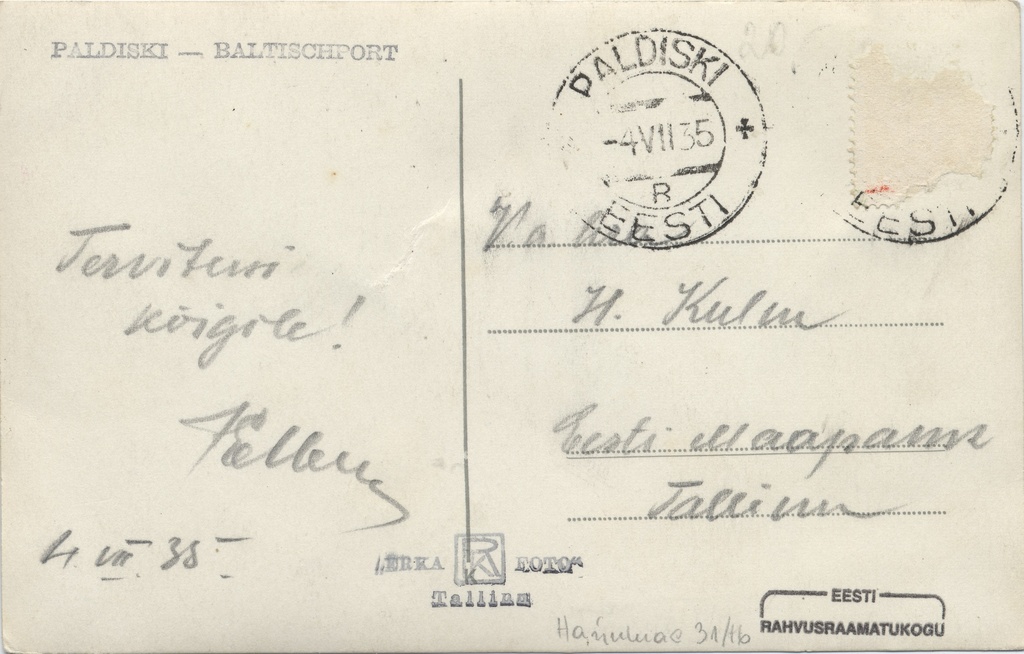 PALDISKI — BALTISCHPORT
20
PALDISKI
-4 VII 35
B
EESTI
EESTI
Tervitusi
kõigile!
4. VII 35
H. Kulm
Eesti Maapank
Tallinn
„ERKA FOTO“
RK
Tallinn
31/16
EESTI
RAHVUSRAAMATUKOGU